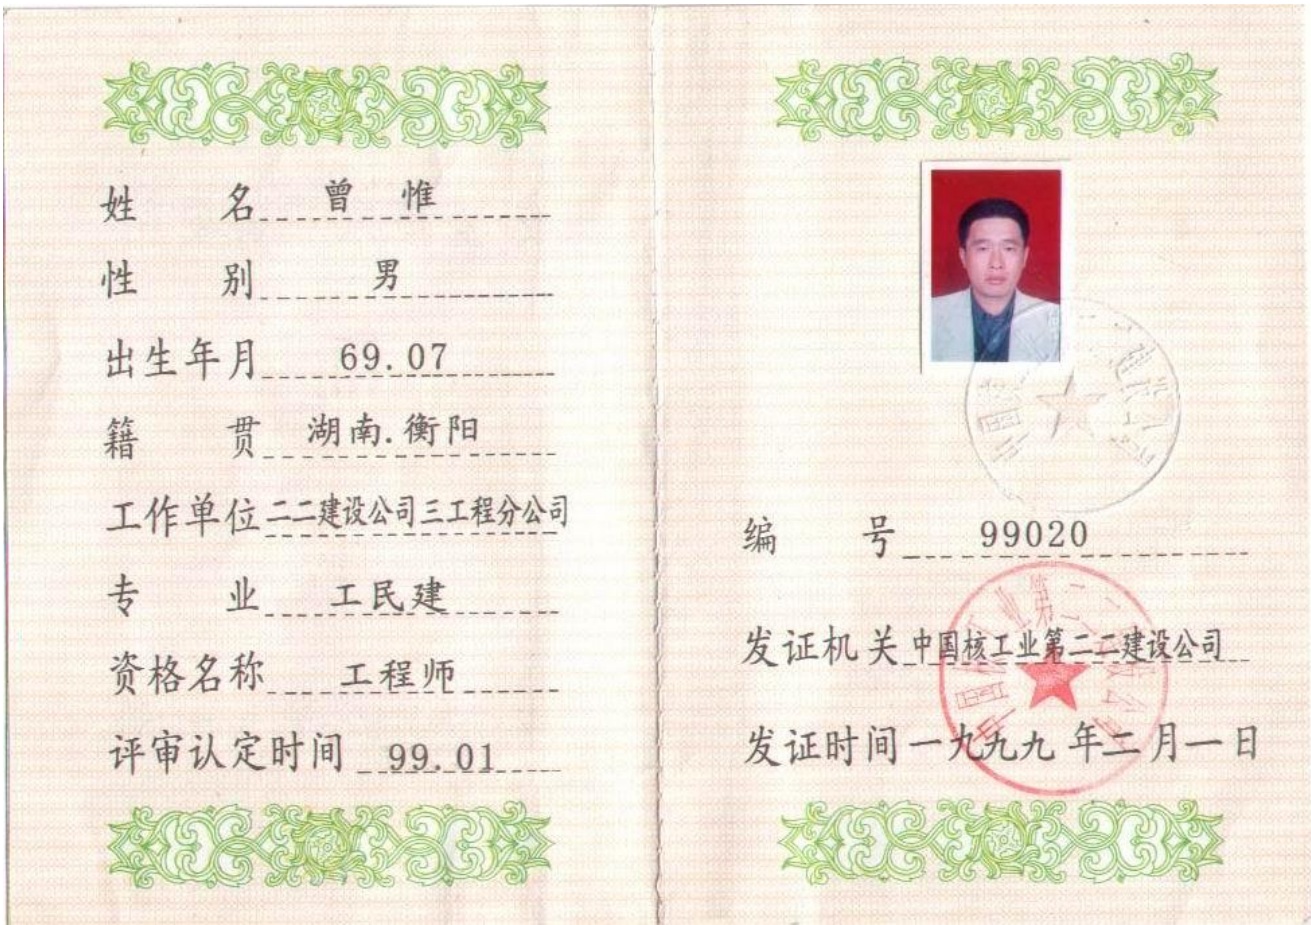 姓名 曾惟
性别 男
出生年月 69.07
籍贯 湖南.衡阳
工作单位 二二建设公司三工程分公司
专业 工民建
资格名称 工程师
评审认定时间 99.01
编号 99020
发证机关 中国核工业第二二建设公司
发证时间 一九九九年二月一日
中国核工业第二二建设公司